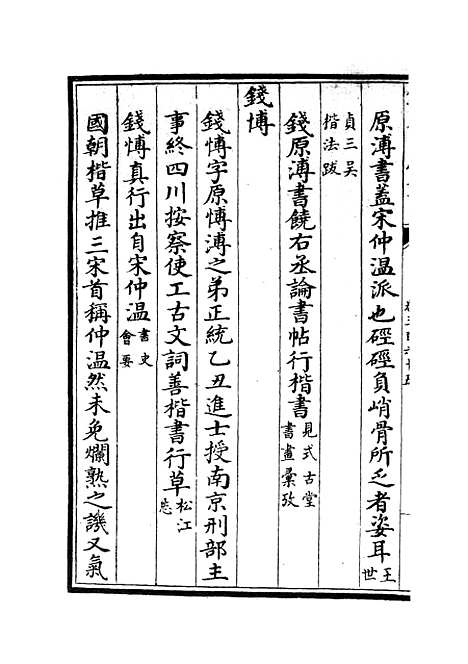 原溥書蓋宋仲温派也硜硜負峭骨所乏者姿耳王世
貞三吳楷法跋
錢原溥書饒右丞論書帖行楷書見式古堂書畫彙攷
錢博
錢博字原博溥之弟正統乙丑進士授南京刑部主
事終四川按察使工古文詞善楷書行草松江志
錢博真行出自宋仲温書史會要
國朝楷草推三宋首稱仲温然未免爛熟之譏又氣